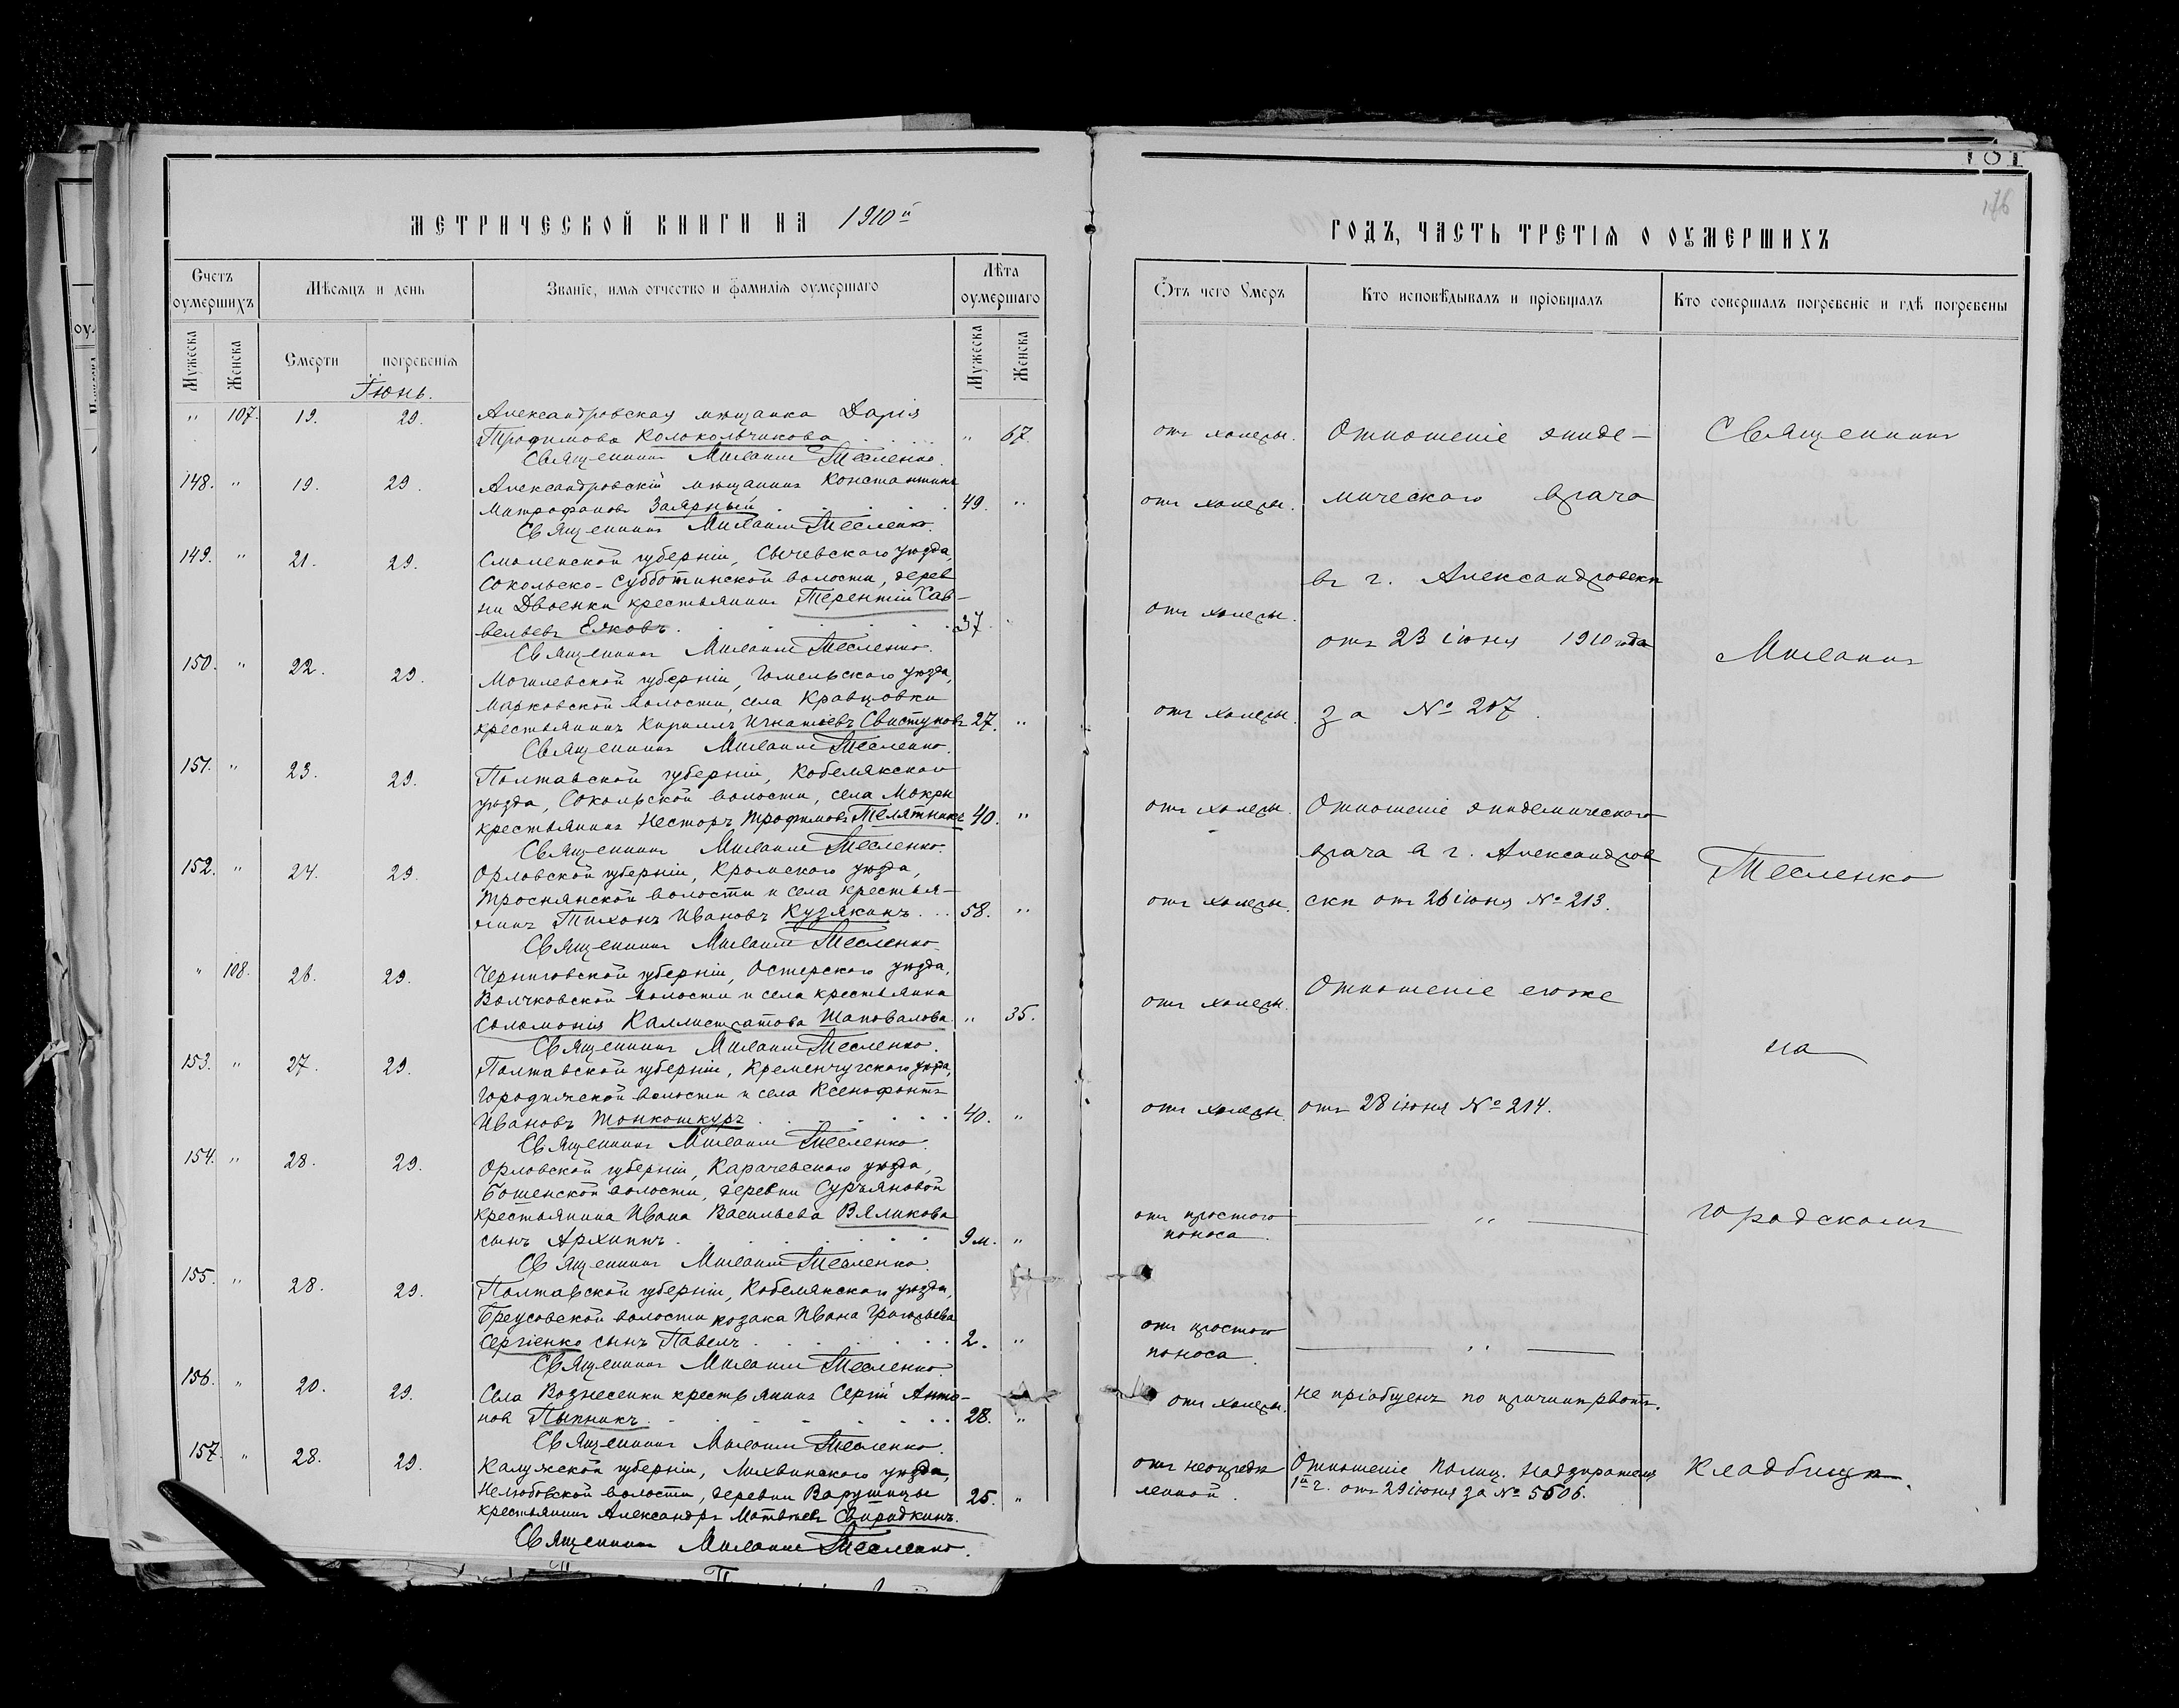 МЕТРИЧЕСКОЙ КНИГИ НА 1910й
Счетъ оумершихъ
Мѣсяцъ и день
Званіе, имя отчество и фамилія оумершаго
Лѣта оумершаго
Мужеска
Женска
Смерти
погребенія
Мужеска
Женска
Іюнь.
" 107. 19. 29. Александровская мѣщанка Дарія
Трофимова Колокольчикова " 67.
Священникъ Михаилъ Тесленко.
148. " 19. 29. Александровскій мѣщанинъ Константинъ
Митрофановъ Заярный 49. "
Священникъ Михаилъ Тесленко.
149. " 21. 29. Смоленской губерніи, Сычевскаго уѣзда,
Сокольско-Субботинской волости, дерев
ни Двоенки крестьянинъ Терентій Сав-
вельевъ Ежовъ. 37. "
Священникъ Михаилъ Тесленко.
150. " 22. 29. Могилевской губерніи, Гомельскаго уѣзда,
Марковской волости, села Кравцовки
крестьянинъ Кириллъ Игнатьевъ Свистуновъ 27. "
Священникъ Михаилъ Тесленко.
151. " 23. 29. Полтавской губерніи, Кобелякскаго
уѣзда, Сокольской волости, села Мокры
крестьянинъ Несторъ Трофимовъ Телятникъ 40. "
Священникъ Михаилъ Тесленко.
152. " 24. 29. Орловской губерніи, Кромскаго уѣзда,
Троснянской волости и села крестья-
нинъ Тихонъ Ивановъ Кузякинъ 58. "
Священникъ Михаилъ Тесленко.
" 108. 26. 29. Черниговской губерніи, Остерскаго уѣзда,
Волчковской волости и села крестьянка
Соломонія Каллистратова Шаповалова " 35.
Священникъ Михаилъ Тесленко.
153. " 27. 29. Полтавской губерніи, Кременчугскаго уѣзда,
Городижской волости и села Ксенофонтъ
Ивановъ Тонкошкуръ 40. "
Священникъ Михаилъ Тесленко.
154. " 28. 29. Орловской губерніи, Карачевскаго уѣзда,
Бошенской волости, деревни Суръяновой
крестьянина Ивана Васильева Вяликова
сынъ Архипъ. 9 м. "
Священникъ Михаилъ Тесленко.
155. " 28. 29. Полтавской губерніи, Кобелякскаго уѣзда,
Бреусовской волости козака Ивана Григорьева
Сергіенко сынъ Павелъ 2. "
Священникъ Михаилъ Тесленко.
156. " 20. 29. Села Вознесенки крестьянинъ Сергій Анто-
новъ Пыпникъ. 28. "
Священникъ Михаилъ Тесленко.
157. " 28. 29. Калужской губерніи, Лихвинскаго уѣзда,
Нелюбовской волости, деревни Варушицы 25. "
крестьянинъ Александръ Матвѣевъ Свиридкинъ.
Священникъ Михаилъ Тесленко.
181
176
ГОДЪ, ЧАСТЬ ТРЕТІЯ О ОУМЕРШИХЪ
Отъ чего Умеръ
Кто исповѣдывалъ и пріобщалъ
Кто совершалъ погребеніе и гдѣ погребены
отъ холеры. Отношеніе эпиде- Священникъ
отъ холеры. мическаго врача
въ г. Александровскѣ
отъ холеры.
отъ 23 іюня 1910 года Михаилъ
отъ холеры. за № 207.
отъ холеры. Отношеніе эпидемическаго
врача въ г. Александров Тесленко
отъ холеры. скѣ отъ 26 іюня № 213.
отъ холеры. Отношеніе егоже
на
отъ холеры. отъ 28 іюня № 214.
отъ простого " городскомъ
поноса.
отъ простого
поноса. "
отъ холеры. не пріобщенъ по причинѣ рвоты.
отъ неопредѣ Отношеніе Полиц. Надзирателя кладбищѣ.
ленной. 1й ч. отъ 29 іюня за № 5606.